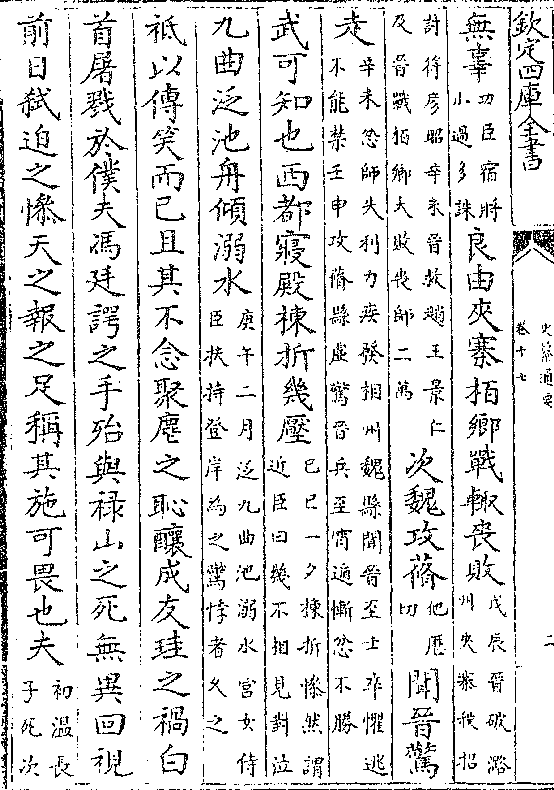 欽定四庫全書
史纂通要
卷十七
二
無辜功臣宿將小過多誅良由夾寨栢鄉戰輙喪敗戊辰晉破潞州夾寨積招
討符彦昭辛未晉救趙王景仁及晉戰栢鄉大敗喪師二萬次魏攻蓨他歴切聞晉驚
走辛未忿師失利力疾發相州魏縣聞晉至士卒懼逃不能禁壬申攻蓨縣虚驚晉兵至宵遁慚忿不勝
武可知也西都寢殿棟折幾壓己巳一夕棟折慘然謂近臣曰幾不相見對泣
九曲泛池舟傾溺水庚午二月泛九曲池溺水宫女侍臣扶持登岸為之驚悸者久之
祇以傳笑而已且其不念聚麀之恥釀成友珪之禍白
首屠戮於僕夫馮廷諤之手殆與禄山之死無異回視
前日弑迫之慘天之報之足稱其施可畏也夫初温長子死次